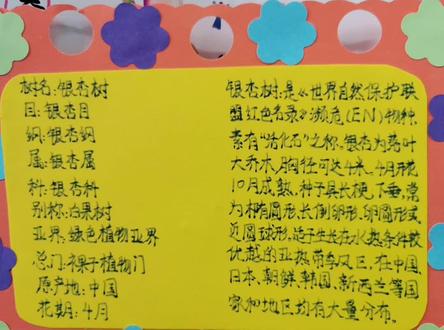 树名:银杏树
目:银杏目
纲:银杏纲
属:银杏属
科:银杏科
别称:白果树
亚界:绿色植物亚界
总门:裸子植物门
原产地:中国
花期:4月
银杏树:是《世界自然保护联
盟红色名录》濒危(EN)物种,
素有“活化石”之称。银杏为落叶
大乔木,胸径可达4米。4月开花
10月成熟,种子具长梗,下垂,常
为椭圆形,长倒卵形,卵圆形或
近圆球形,适于生长在水热条件较
优越的亚热带季风区,在中国,
日本,朝鲜,韩国,新西兰等国
家和地区均有大量分布。